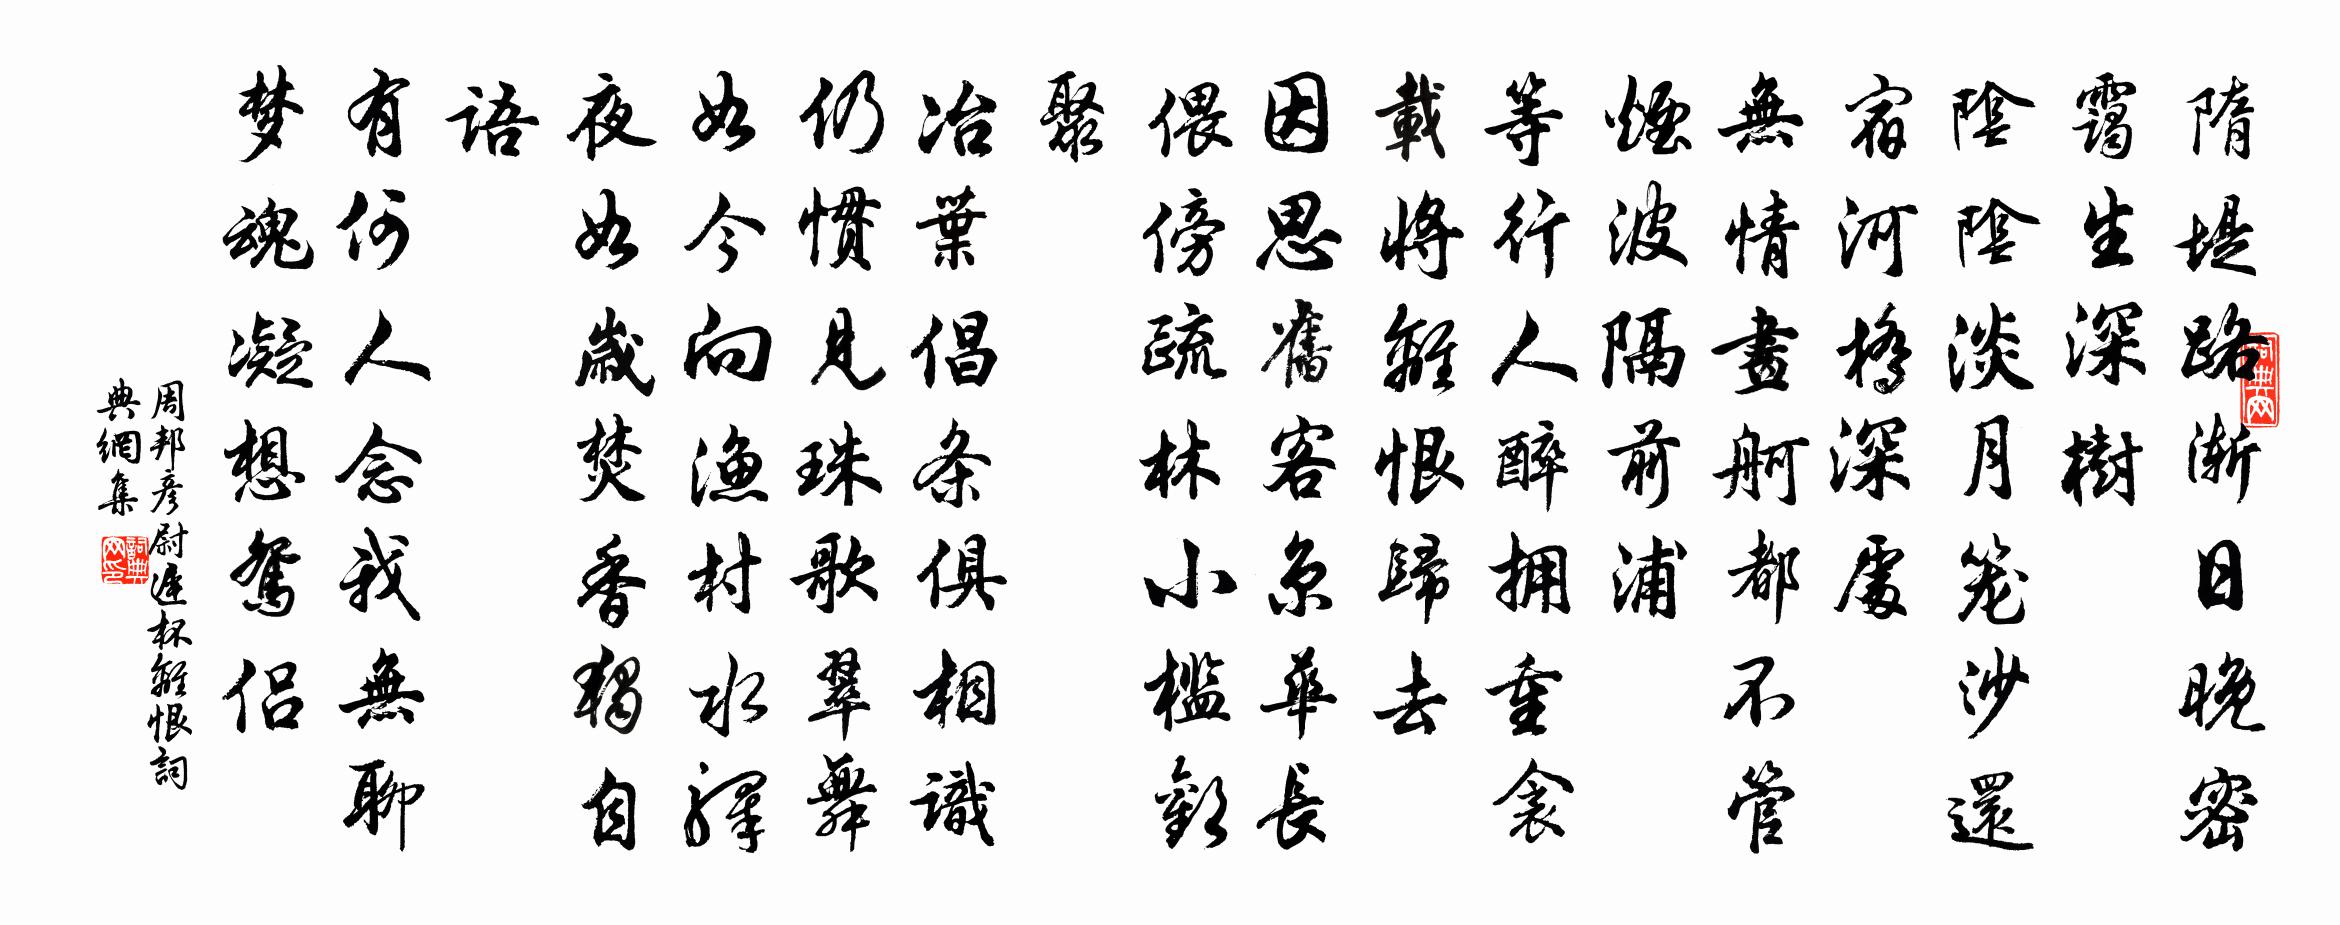 隋堤路漸日晚密
靄生深樹
陰陰淡月笼沙還
宿河橋深處
無情畫舸都不管
煙波隔前浦
等行人醉拥重衾
載將離恨歸去
因思舊客京華長
偎傍疏林小檻歡
聚
冶葉倡条俱相識
仍慣見珠歌翠舞
如今向漁村水驛
夜如歲焚香獨自
語
有何人念我無聊
梦魂凝想鴛侶
周邦彦尉遲杯離恨詞
典網集
詞典网
詞典网印